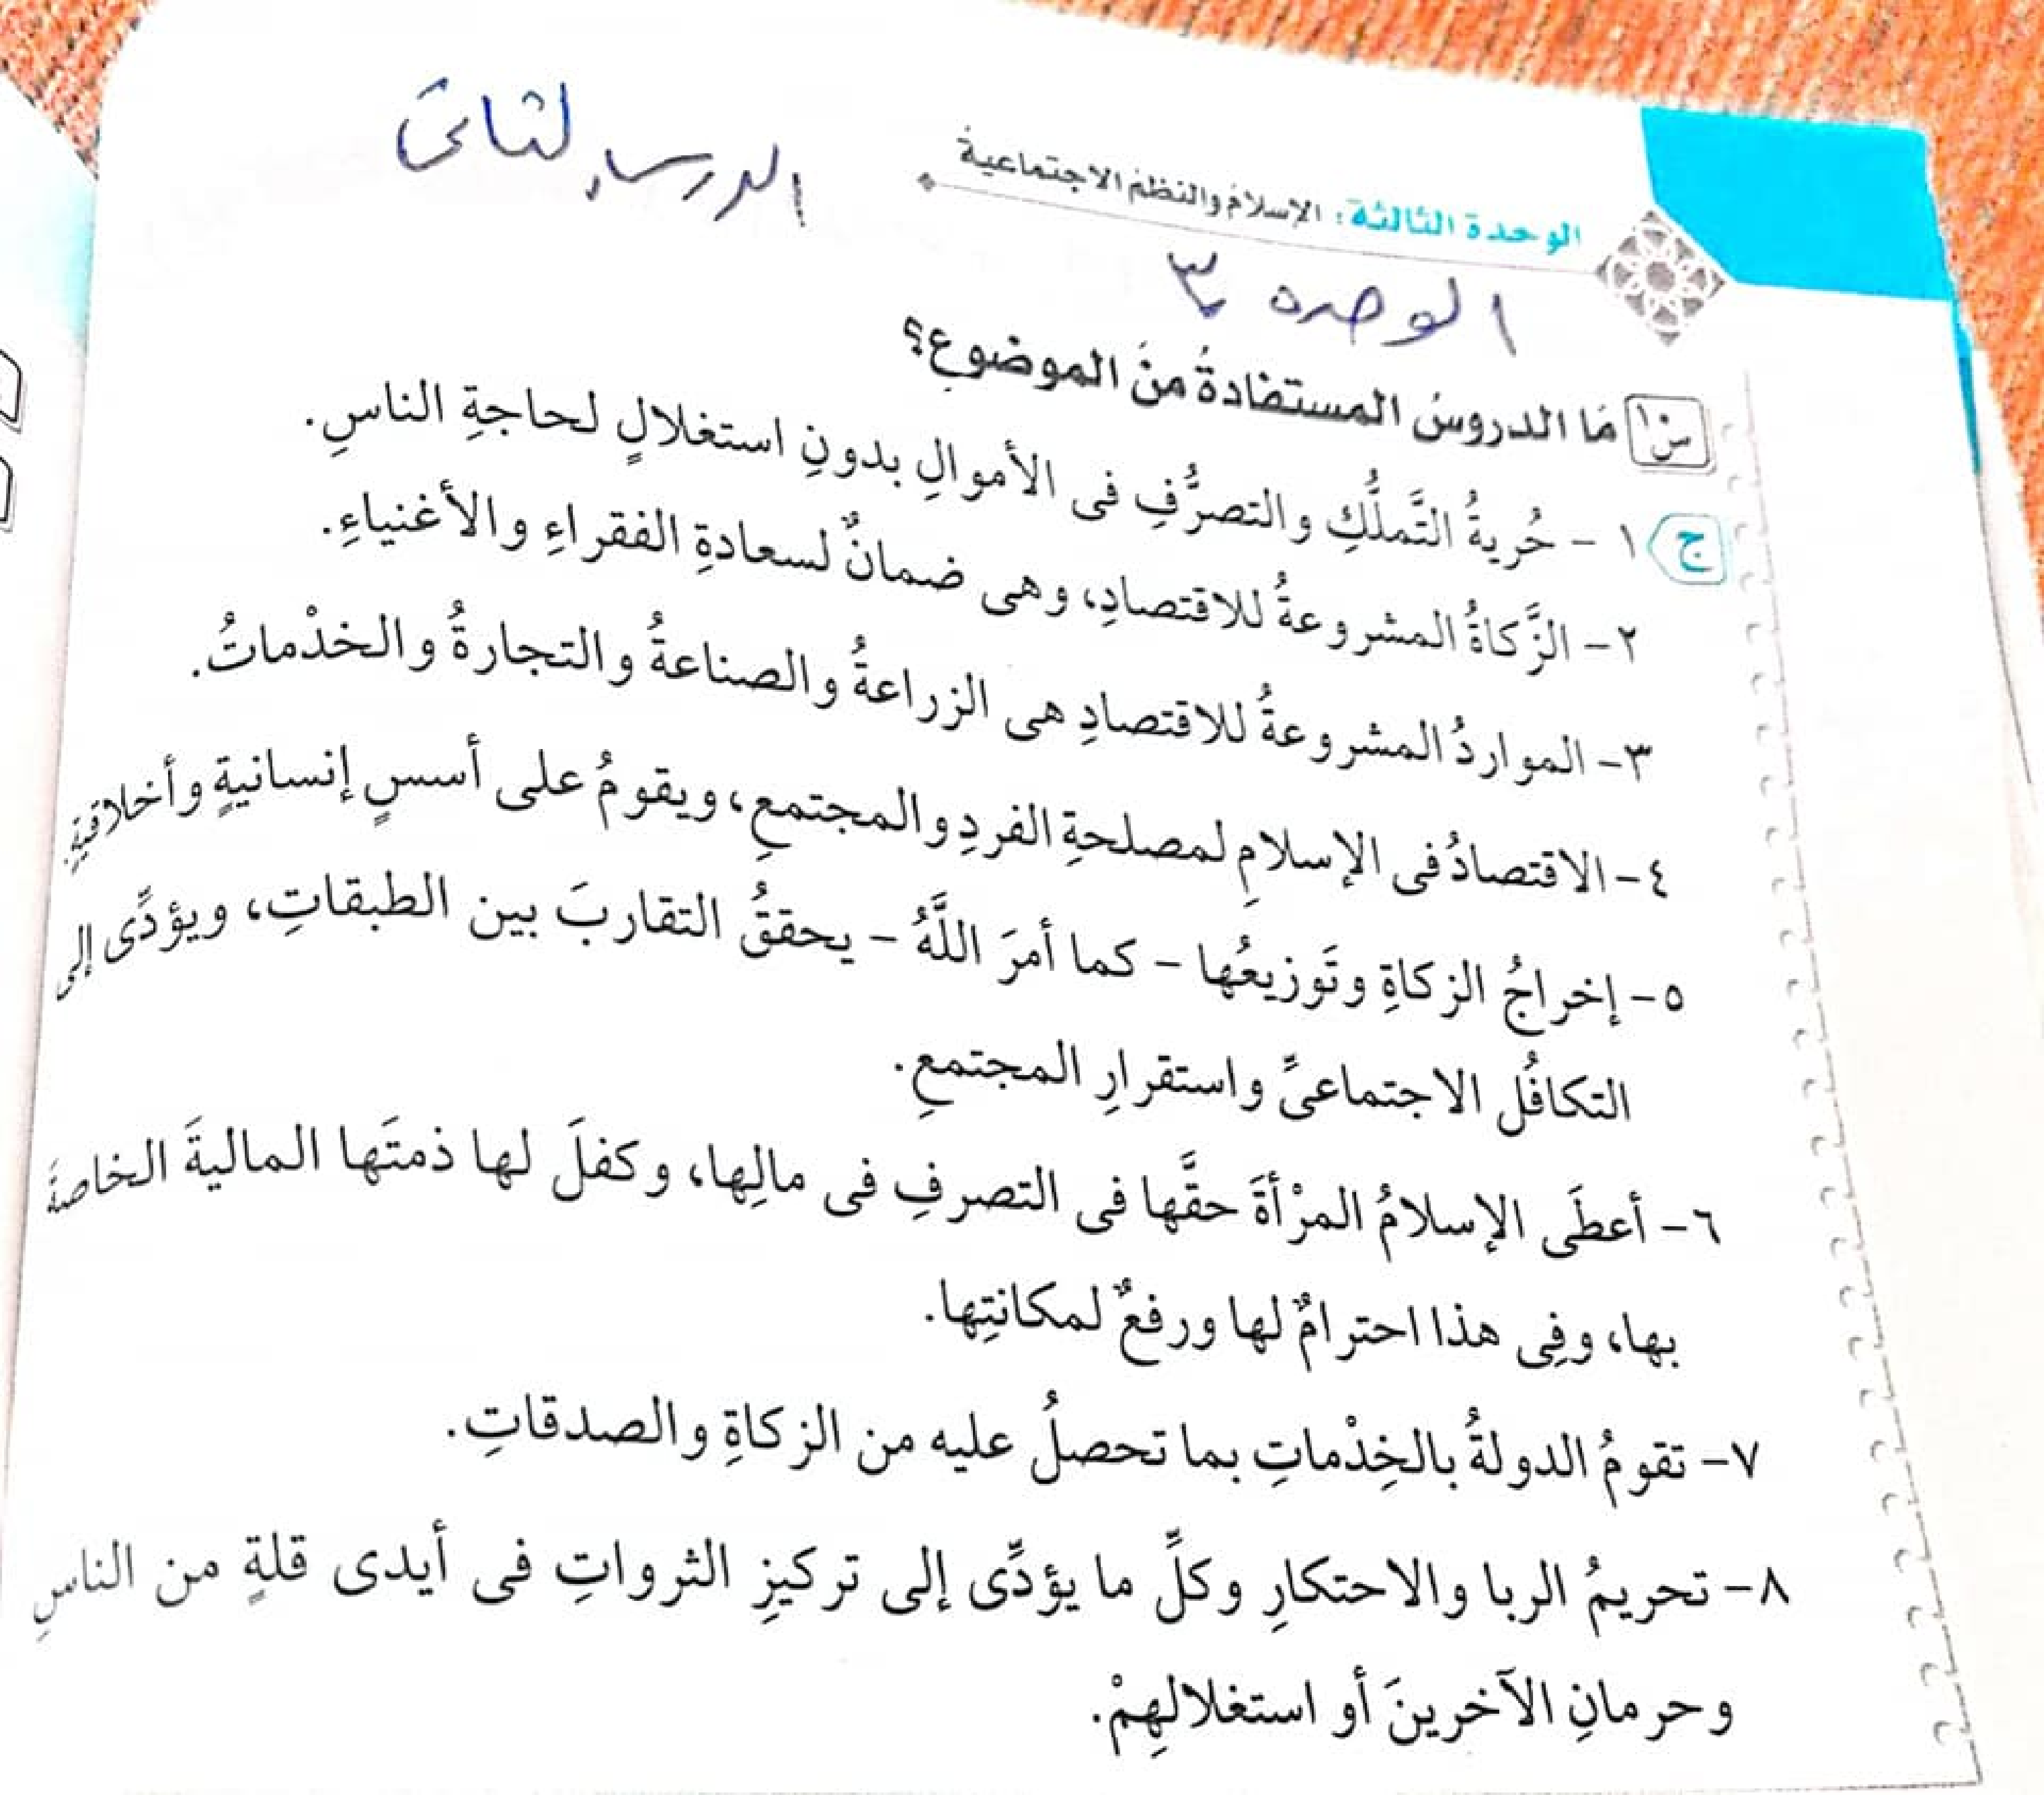 الدرس الثانى
الوحدة الثالثة: الإسلامُ والنظمُ الاجتماعيةُ
الوحده ٣
س١٠ مَا الدروسُ المستفادةُ منَ الموضوعِ؟
ج ١ - حُريةُ التَّملُّكِ والتصرُّفِ فى الأموالِ بدونِ استغلالٍ لحاجةِ الناسِ.
٢- الزَّكاةُ المشروعةُ للاقتصادِ، وهى ضمانٌ لسعادةِ الفقراءِ والأغنياءِ.
٣- المواردُ المشروعةُ للاقتصادِ هى الزراعةُ والصناعةُ والتجارةُ والخدْماتُ.
٤- الاقتصادُ فى الإسلامِ لمصلحةِ الفردِ والمجتمعِ، ويقومُ على أسسٍ إنسانيةٍ وأخلاقيةٍ.
٥- إخراجُ الزكاةِ وتَوزيعُها - كما أمرَ اللَّهُ - يحققُ التقاربَ بين الطبقاتِ، ويؤدِّى إلى
التكافُل الاجتماعىِّ واستقرارِ المجتمعِ.
٦- أعطَى الإسلامُ المرْأةَ حقَّها فى التصرفِ فى مالِها، وكفلَ لها ذمتَها الماليةَ الخاصةَ
بها، وفِى هذا احترامٌ لها ورفعٌ لمكانتِها.
٧- تقومُ الدولةُ بالخِدْماتِ بما تحصلُ عليه من الزكاةِ والصدقاتِ.
٨- تحريمُ الربا والاحتكارِ وكلِّ ما يؤدِّى إلى تركيزِ الثرواتِ فى أيدى قلةٍ من الناسِ
وحرمانِ الآخرينَ أو استغلالهِمْ.